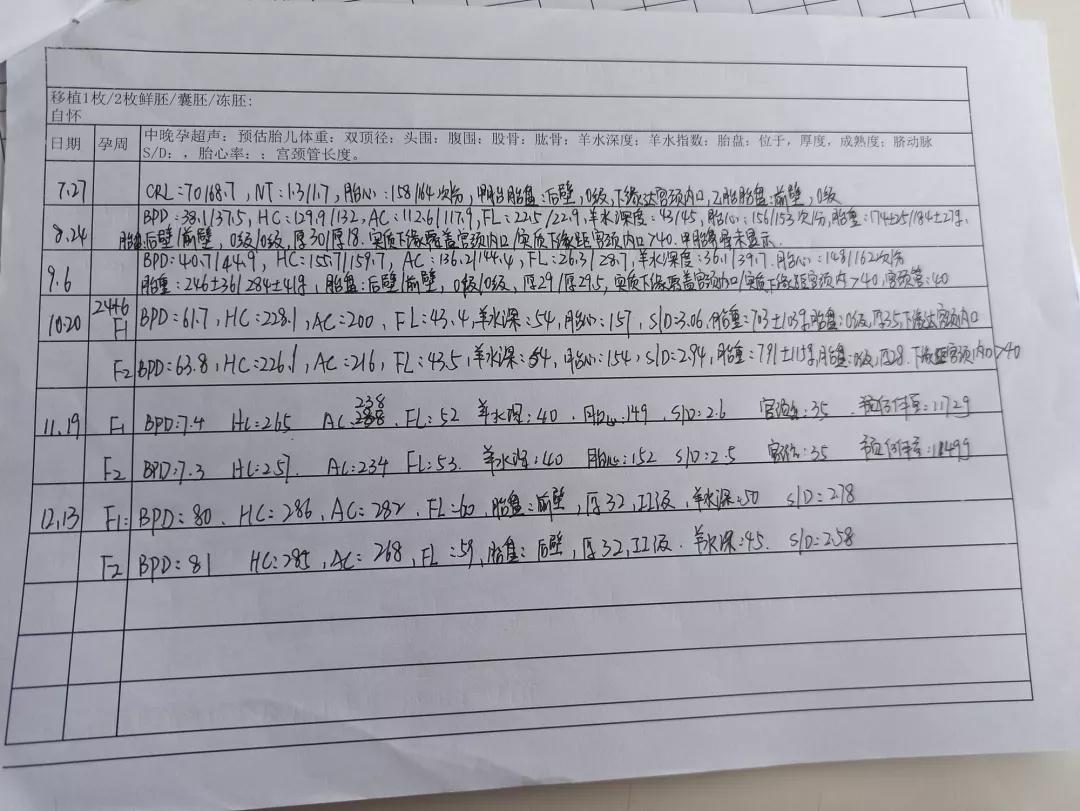 移植1枚/2枚鲜胚/囊胚/冻胚:
自怀
日期 孕周 中晚孕超声: 预估胎儿体重: 双顶径: 头围: 腹围: 股骨: 肱骨: 羊水深度: 羊水指数: 胎盘: 位于, 厚度, 成熟度: 脐动脉
S/D: , 胎心率: ; 宫颈管长度。
7.27 CRL=70/68.7, NT:1.3/1.7, 胎心:158/164次/分, 甲胎胎盘:后壁, 0级, 下缘达宫颈内口, 乙胎胎盘:前壁, 0级
8.24 BPD=38.1/37.5, HC=129.9/132, AC=112.6/117.9, FL=22.5/22.9, 羊水深度=43/45, 胎心:156/153次/分, 胎重:174±25/184±27g,
胎盘后壁/前壁, 0级/0级, 厚30/厚18. 实质下缘覆盖宫颈内口/实质下缘距宫颈内口>40. 甲胎鼻骨未显示.
9.6 BPD=40.7/44.9, HC=155.7/159.7, AC=136.2/144.4, FL=26.3/28.7, 羊水深度=36.1/39.7. 胎心:148/162次/分
胎重=246±36/284±41g, 胎盘:后壁/前壁, 0级/0级, 厚29/厚29.5, 实质下缘覆盖宫颈内口/实质下缘距宫颈内口>40, 宫颈管:40
10.20 24+6 F1 BPD=61.7, HC=228.1, AC=200, FL=43.4, 羊水深=54, 胎心:157, S/D=3.06, 胎重=703±103g, 胎盘:0级, 厚35, 下缘达宫颈内口
F2 BPD=63.8, HC=226.1, AC=216, FL=43.5, 羊水深=54, 胎心:154, S/D=2.94, 胎重=791±115g, 胎盘:0级, 厚28. 下缘距宫颈内口>40
238
11.19 F1 BPD:7.4 HC=265 AC: FL=52 羊水深:40. 胎心:149 S/D=2.6 宫颈长:35 预估体重=1172g
F2 BPD:7.3 HC=257. AC=234 FL=53. 羊水深:40 胎心:152 S/D=2.5 宫颈长:35
12.13 F1: BPD=80. HC=286, AC=282, FL=60, 胎盘:前壁, 厚32, II级, 羊水深:50 S/D=2.78
F2 BPD=81 HC=285, AC=268, FL=59, 胎盘:后壁, 厚32, II级. 羊水深:45. S/D=2.58